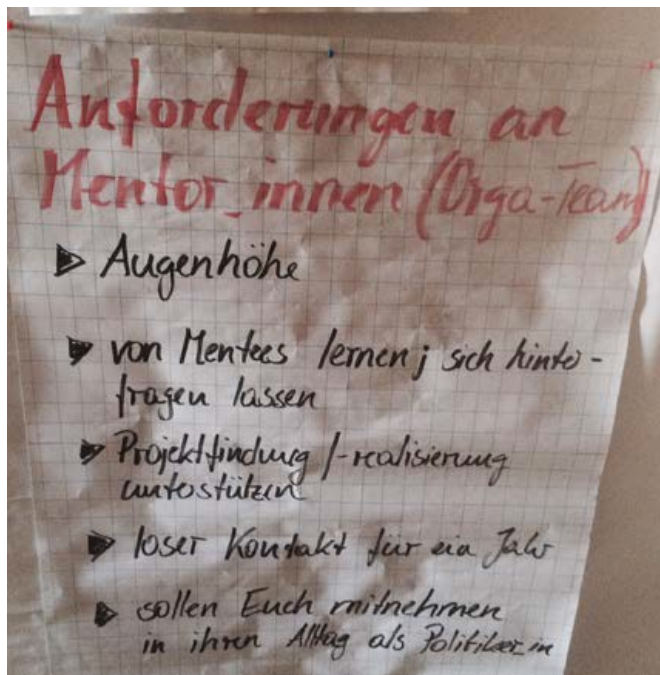 Anforderungen an
Mentor_innen (Orga-Team)
Augenhöhe
von Mentees lernen; sich hinter-
fragen lassen
Projektfindung /-realisierung
unterstützen
loser Kontakt für ein Jahr
sollen Euch mitnehmen
in ihren Alltag als Politiker_in